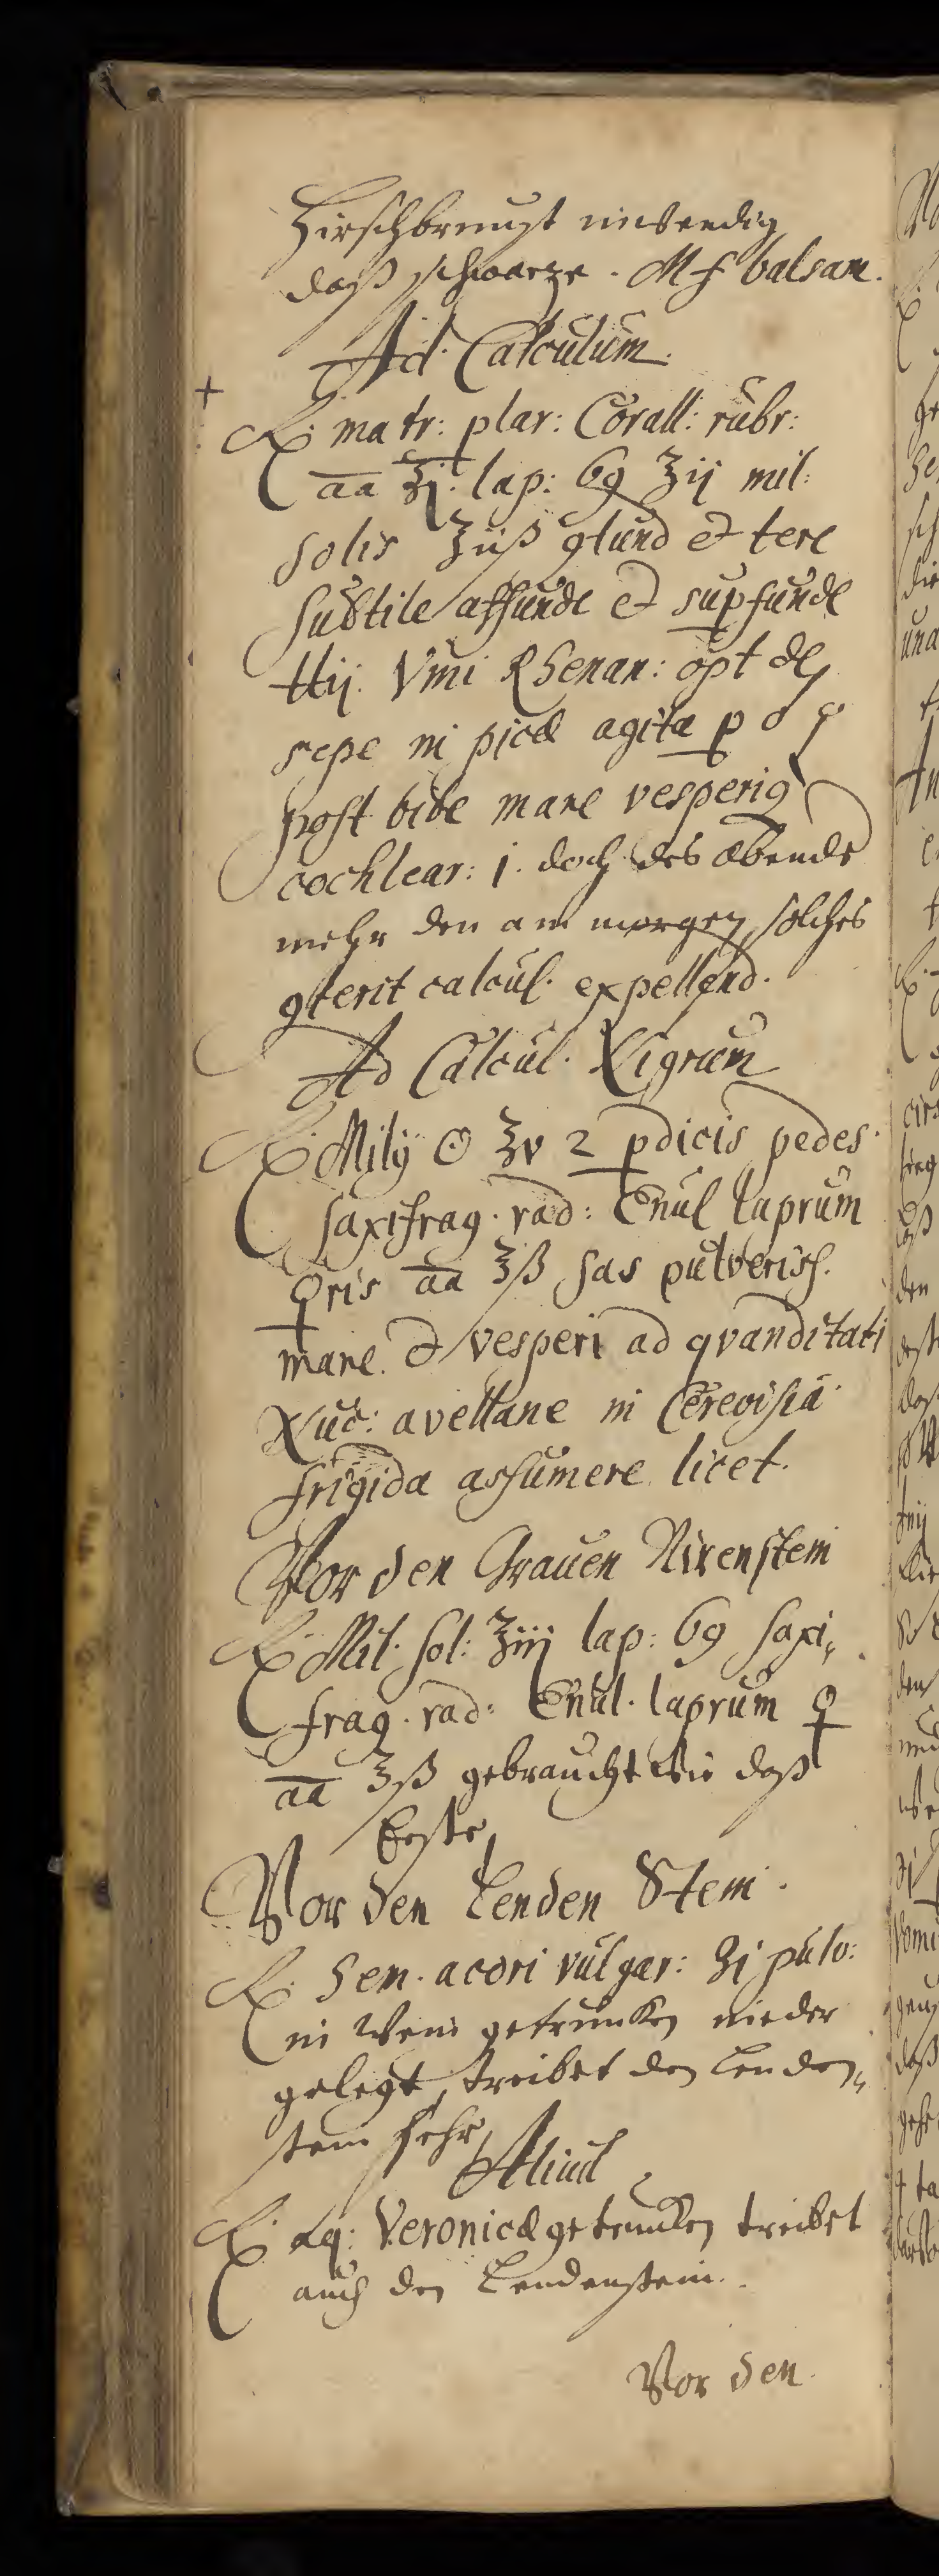 Hirschbrunst inwendig
daß schwarze. M f balsam.
Ad Calculum.
+
℞. matr: plar: Corall: rubr:
aa ʒj. lap: 69 ʒij mil:
solis ʒiiß 9tund et tere
subtile affunde et supfunde
℔ij. Vini Rhenan: opt
sepe in picd agita p
post bibe mane vesperiq
cochlear: j. doch des abends
mehr den am morgen, solches
9terit calcul. expellend.
Ad Calcul. Nigrum
℞. Milij ☉ ʒv 2 pdicis pedes.
saxifrag. rad: Enul laprum
♀ris aa ʒß has pulverisf.
mane. et vesperi ad qvanditati
Nuc: avellane in Cerevisia
frigida assumere licet.
Vor den Grauen Nirenstein
℞. Mil. sol: ʒiij lap: 69 saxi„
frag. rad: Enul. laprum ♀
aa ʒß gebraucht wie daß
Erste
Vor den Lenden Stein.
℞. Sem. acori vulgar: ʒj pulv:
in Wein getruncken nieder
gelegt, treibet den Lenden„
stein sehr
Aliud
℞. aq: Veronicæ getruncken treibet
auch den Lendenstein.
Vor den